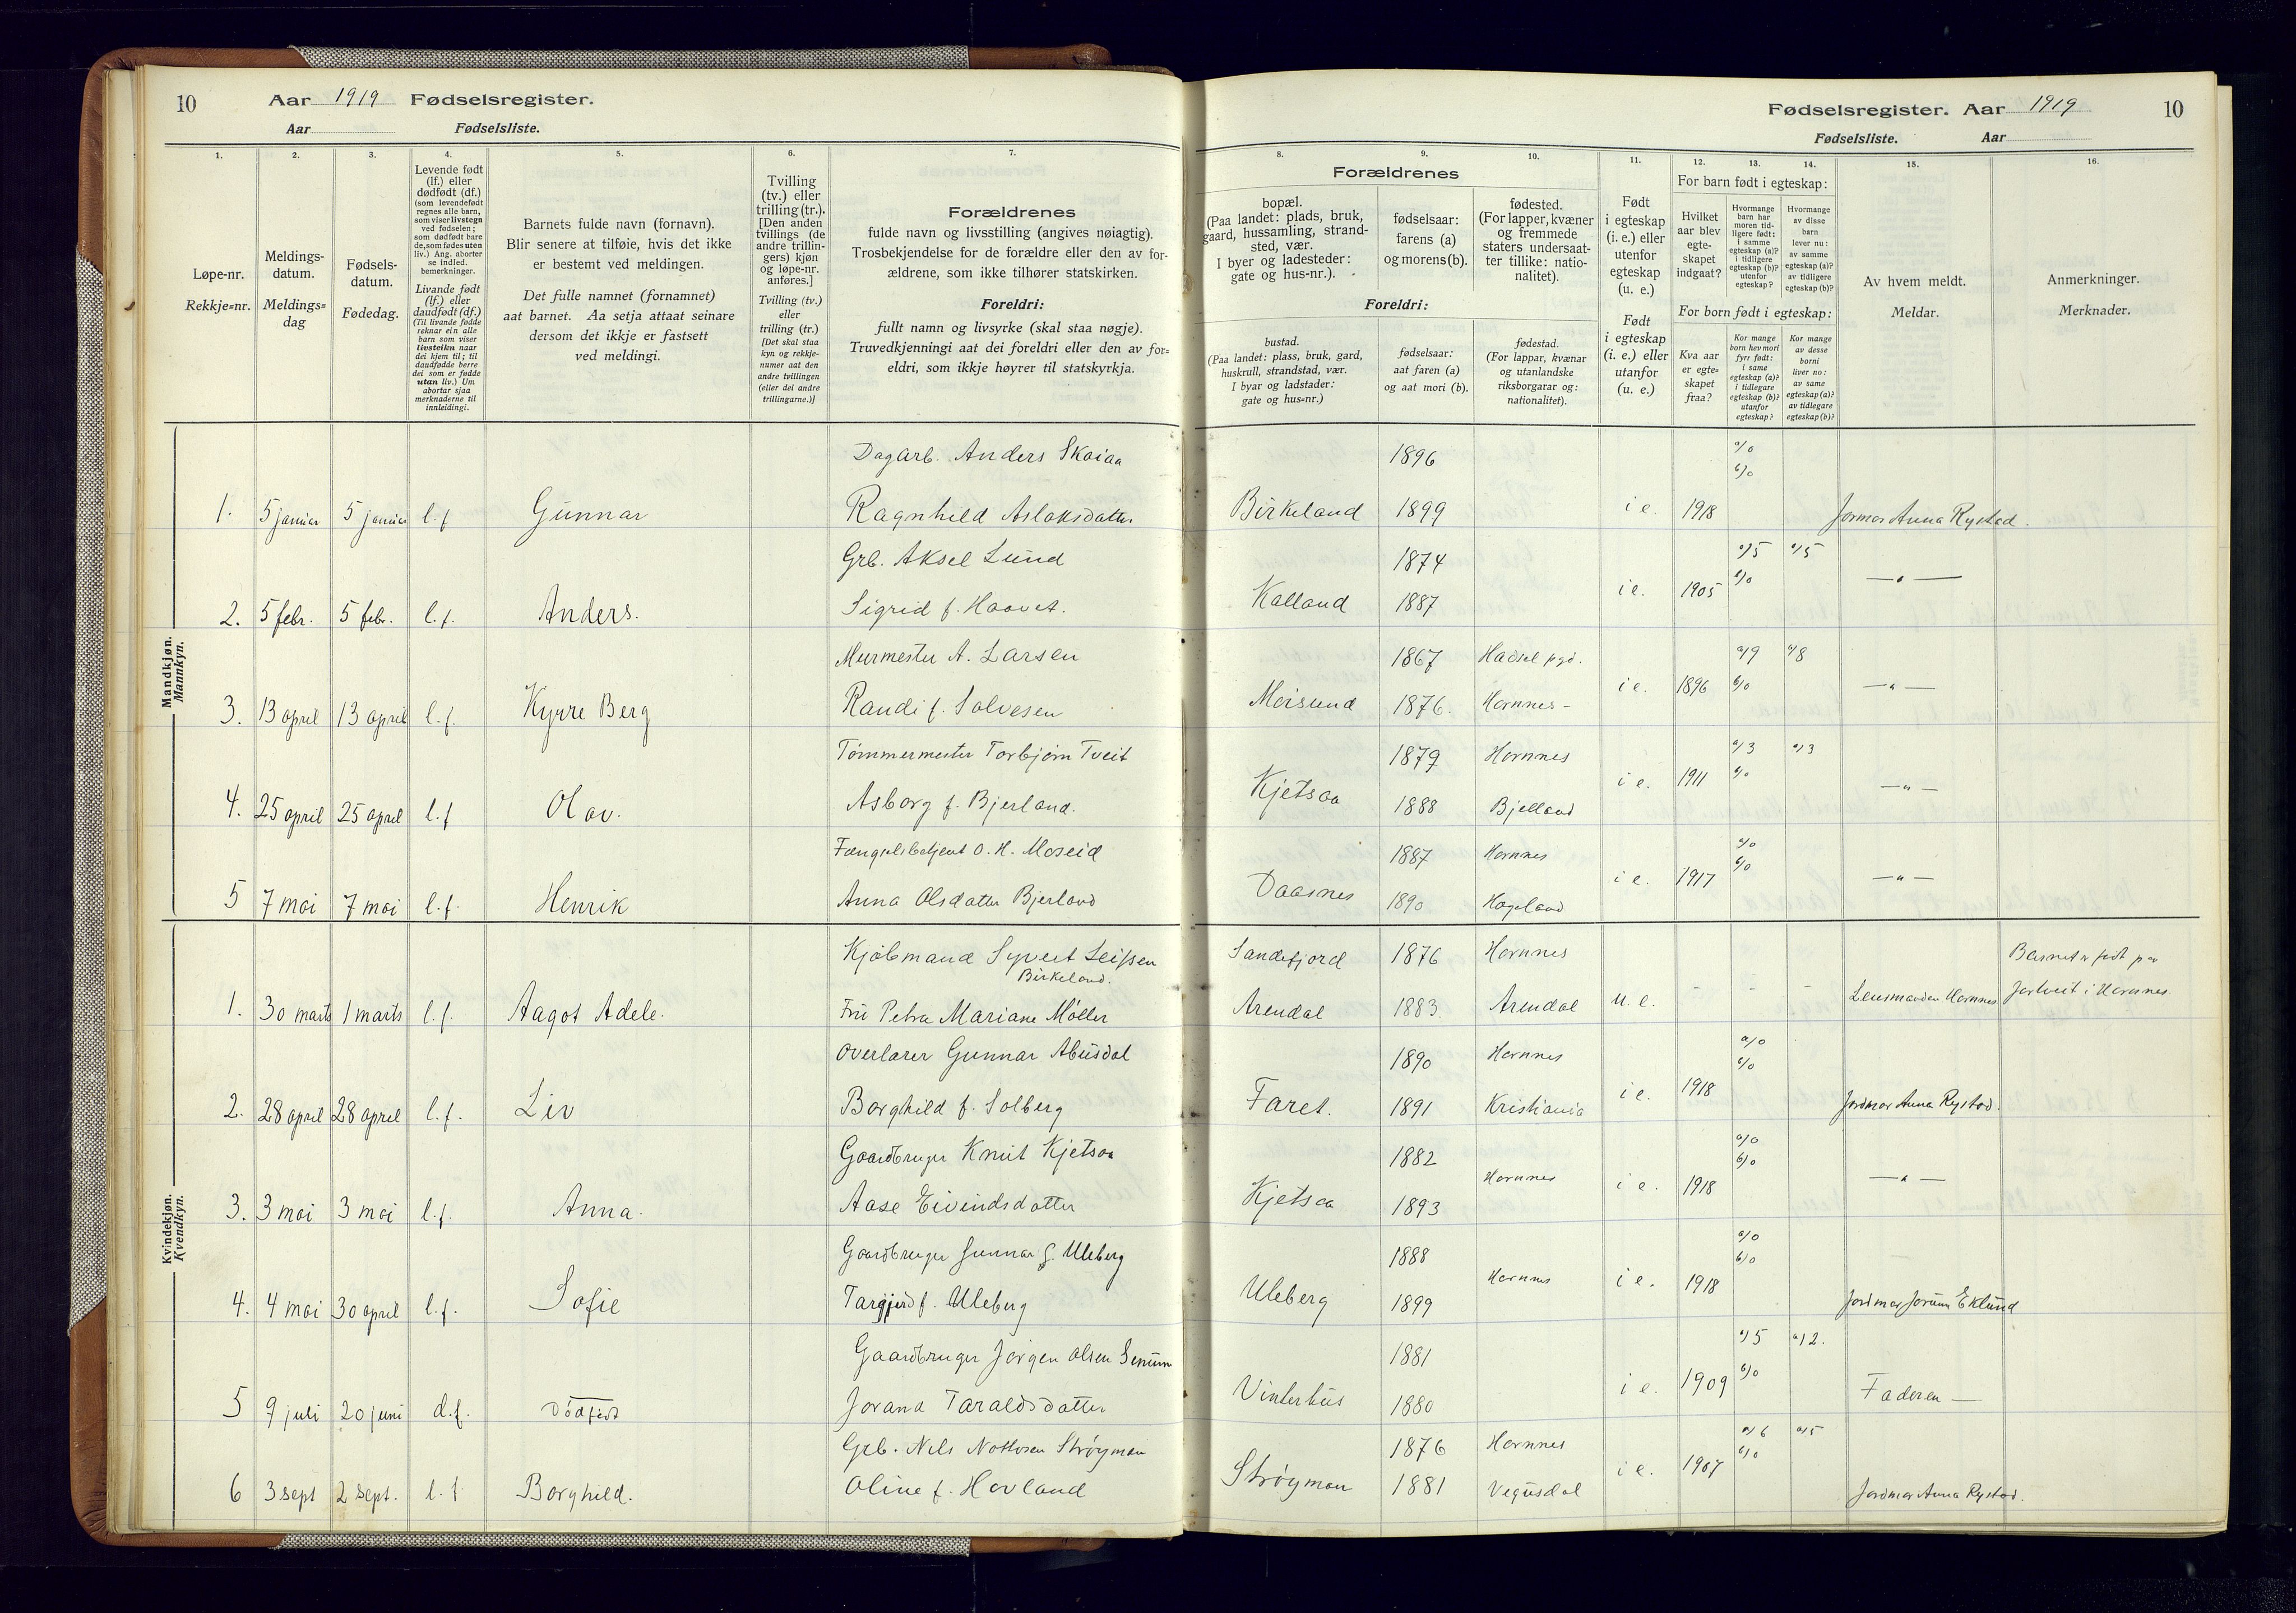 10 Aar 1919 Fødselsregister.
Aar Fødselsliste.
Fødselsregister. Aar 1919 10
Fødselsliste. Aar
1. 2. 3. 4. 5. 6. 7.
Løpe-nr.
Rekkje=nr.
Meldings-
datum.
Meldings=
dag
Fødsels-
datum.
Fødedag.
Levende født
(lf.) eller
dødfødt (df.)
(som levendefødt
regnes alle barn,
som viser livstegn
ved fødselen;
som dødfødt bare
de, som fødes uten
liv.) Ang. aborter
se indled.
bemerkninger.
Livande født
(lf.) eller
daudfødt (df.)
(Til livande fødde
reknar ein alle
barn som viser
livsteikn naar
dei kjem til; til
daudfødde berre
dei som er fødde
utan liv.) Um
abortar sjaa
merknaderne til
innleidingi.
Barnets fulde navn (fornavn).
Blir senere at tilføie, hvis det ikke
er bestemt ved meldingen.
Det fulle namnet (fornamnet)
aat barnet. Aa setja attaat seinare
dersom det ikkje er fastsett
ved meldingi.
Tvilling
(tv.) eller
trilling (tr.).
[Den anden
tvillings (de
andre trillin-
gers) kjøn
og løpe-nr.
anføres.]
Tvilling (tv.)
eller
trilling (tr.)
[Det skal staa
kyn og rekkje-
numer aat den
andre tvillingen
(eller dei andre
trillingarne.)]
Forældrenes
fulde navn og livsstilling (angives nøiagtig).
Trosbekjendelse for de forældre eller den av for-
ældrene, som ikke tilhører statskirken.
Foreldri:
fullt namn og livsyrke (skal staa nøgje).
Truvedkjenningi aat dei foreldri eller den av for=
eldri, som ikkje høyrer til statskyrkja.
8. 9. 10. 11. 12. 13. 14. 15. 16.
Forældrenes
bopæl.
(Paa landet: plads, bruk,
gaard, hussamling, strand-
sted, vær.
I byer og ladesteder:
gate og hus-nr.).
fødselsaar:
farens (a)
og morens (b).
fødested.
(For lapper, kvæner
og fremmede
staters undersaat-
ter tillike: natio-
nalitet).
Foreldri:
bustad.
(Paa landet: plass, bruk, gard,
huskrull, strandstad, vær.
I byar og ladstader:
gate og hus=nr.)
fødselsaar:
aat faren (a)
og aat mori (b).
fødestad.
(For lappar, kvænar
og utanlandske
riksborgarar og:
nationalitet).
Født
i egteskap
(i. e.) eller
utenfor
egteskap
(u. e.)
Født
i egteskap
(i. e.) eller
utanfor
(u. e.)
For barn født i egteskap:
Hvilket
aar blev
egte-
skapet
indgaat?
Hvormange
barn har
moren tid-
ligere født:
i samme
egteskap (a)?
i tidligere
egteskap (b)?
utenfor
egteskap?
Hvormange
av disse
barn
lever nu:
av samme
egteskap (a)?
av tidligere
egteskap (b)?
For born født i egteskap:
Kva aar
er egte=
skapet
fraa?
Kor mange
born hev mori
fyrr født:
i same
egteskap (a)?
i tidlegare
egteskap (b)?
utanfor
egteskap?
Kor mange
av desse
borni
liver no:
av same
egteskap (a)?
av tidlegare
egteskap (b)?
Av hvem meldt.
Meldar.
Anmerkninger.
Merknader.
Mandkjøn.
Mannkyn.
Dagarb. Anders Skaiaa 1896 a/0
b/0
1. 5 januar 5 januar l.f Gunnar Ragnhild Aslaksdatter Birkeland 1899 i e. 1918 Jormor Anna Rystad.
Grb. Aksel Lund 1874 a/5 a/5
2. 5 febr. 5 febr. l.f. Anders. Sigrid f. Haavet. Kalland 1887 i e. 1905 b/0 — " —
Murmester A. Larsen 1867 Hadsel pgd. a/9 a/8
3. 13 april 13 april l.f. Kyrre Berg Randi f. Salvesen Moisund 1876. Hornnes – i e. 1896 b/0 — " —
Tømmermester Torbjørn Tveit 1879 Hornnes a/3 a/3
4. 25 april 25 april l.f Olav. Asborg f. Bjerland. Kjetsaa 1888 Bjelland i e. 1911 b/0 — " —
Fængselsbetjent O. H. Moseid 1887 Hornnes a/0
5 7 mai 7 mai l.f. Henrik Anna Olsdatter Bjerland Daasnes 1890 Hægeland i e. 1917 b/0 — " —
Kvindekjøn.
Kvendkyn.
Kjøbmand Syvert Leifsen Sandefjord 1876 Hornnes Barnet er født paa
Birkeland.
1. 30 marts 1 marts l.f. Aagot Adele. Frü Petra Mariane Møller Arendal 1883 Arendal u. e. - - - Lensmanden Hornnes i Hornnes
Overlærer Gunnar Abusdal 1890 Hornnes a/0
2. 28 april 28 april l.f. Liv Borghild f. Solberg Faret. 1891 Kristiania i e. 1918 b/0 Jordmor Anna Rystad.
Gaardbruger Knut Kjetsaa 1882 a/0
3. 3 mai 3 mai l.f. Anna. Aase Eivindsdatter Kjetsaa 1893 Hornnes i e. 1918 b/0 — " —
Gaardbruger Gunnar G. Uleberg 1888 a/0
4. 4 mai 30 april l.f. Sofie Targjerd f. Uleberg Uleberg 1899 Hornnes i e. 1918 b/0 Jordmor Jorunn Eklund
Gaardbruger Jørgen Olsen Senum 1881 a/5 a/2.
5 9 juli 20 juni d.f. Dødfødt Jorand Taraldsdatter Vinterhus 1880 i e. 1909 b/0 Faderen —
Grb. Nils Nottosen Strøymon 1876 Hornnes a/6 a/5
6 3 sept 2 sept. l.f Borghild. Oline f. Hovland Strøymon 1881 Vegusdal i e. 1907 b/0 Jordmor Anna Rystad.